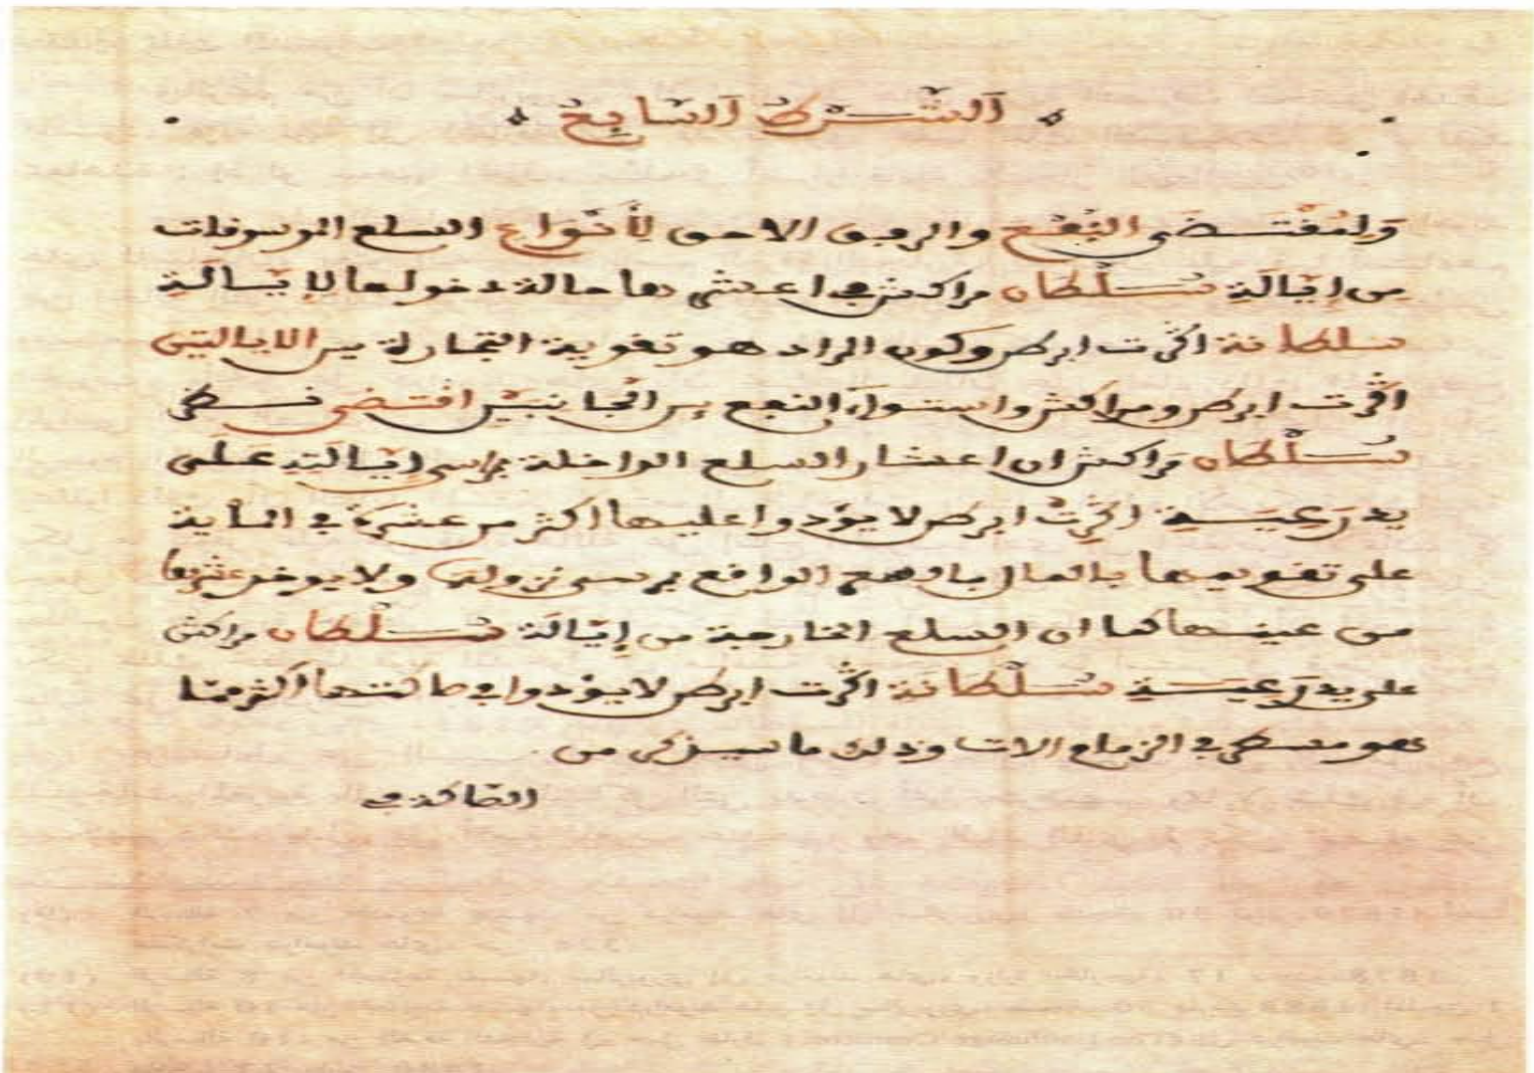 اَلشَّرْطُ اَلسَّابِعُ
وَلِمُقْتَضَى النَّفْعِ والرفق الاحق لِأَنْوَاعِ السلع الموسوقات
من إِيَّالَة سُلْطَان مراكش في اعشارها حالة دخولها لإيَّالَةِ
سلطانة اكْرت ابرطن وكون المراد هو تقوية التجارة بين الايالتين
اكْرت ابرطن ومراكش واستواء النفع بين الجانبَيْن اقتضى نظر
سُلْطَان مَراكش ان اعشار السلع الداخلة بمراسي إِيَّالَتِه عَلَى
يد رَعِيَّةِ اكْرِتْ ابرطن لا يؤدوا عليها اكثر من عشرة في المأية
على تقويمها بالمال بالسعر الواقع بمرسى نزولها ولا يوخذ عشرها
من عينها كما ان السلع الخارجة من إِيَّالَة سُلْطَان مراكش
على يد رَعِيَّةِ سُلْطَانَة اكْرت ابرطن لا يؤدوا في صاكتها اكثر ممّا
هو مسطر في الزمام الات وذلك ما سيذكر من